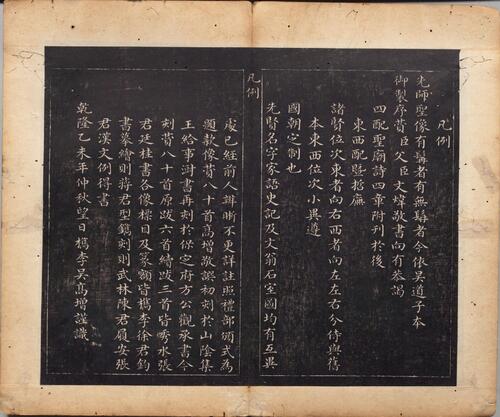 凡例
先師聖像有鬚者有無鬚者今依吳道子本
御製序贊臣父臣文煒敬書向有恭謁
四配聖廟詩四章附刊於後
東西配暨
諸賢位次東者向右西者向左左右分侍與舊
本東西位次小異遵
國朝之制也
先賢名字家語史記及文翁石室圖均有互異
凡例
處已經前人辯晰不更詳註照禮部頒式為
題款像贊八十首高增敬譔初刻於山陰集
王給事澍書再刻於保定府方公觀承書今
刻贊八十首原跋六首續跋三首皆秀水張
君廷桂書各像標目及篆額皆檇李徐君鈞
書摹繪則蔣君型鐫刻則武林陳君履安張
君漢文例得書
乾隆乙未年仲秋望日檇李吳高增謹識